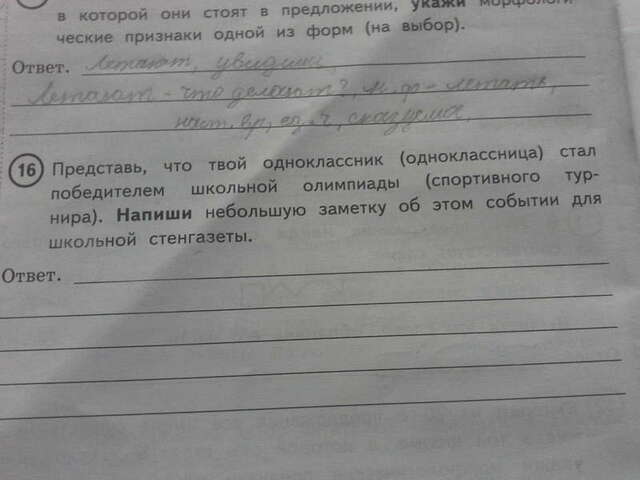 в которой они стоят в предложении, укажи морфологи-
ческие признаки одной из форм (на выбор).
Ответ. Летают, увидишь
Летают - что делают?, н. ф - летать,
наст. вр, ед. ч, сказуемое.
16 Представь, что твой одноклассник (одноклассница) стал
победителем школьной олимпиады (спортивного тур-
нира). Напиши небольшую заметку об этом событии для
школьной стенгазеты.
Ответ.